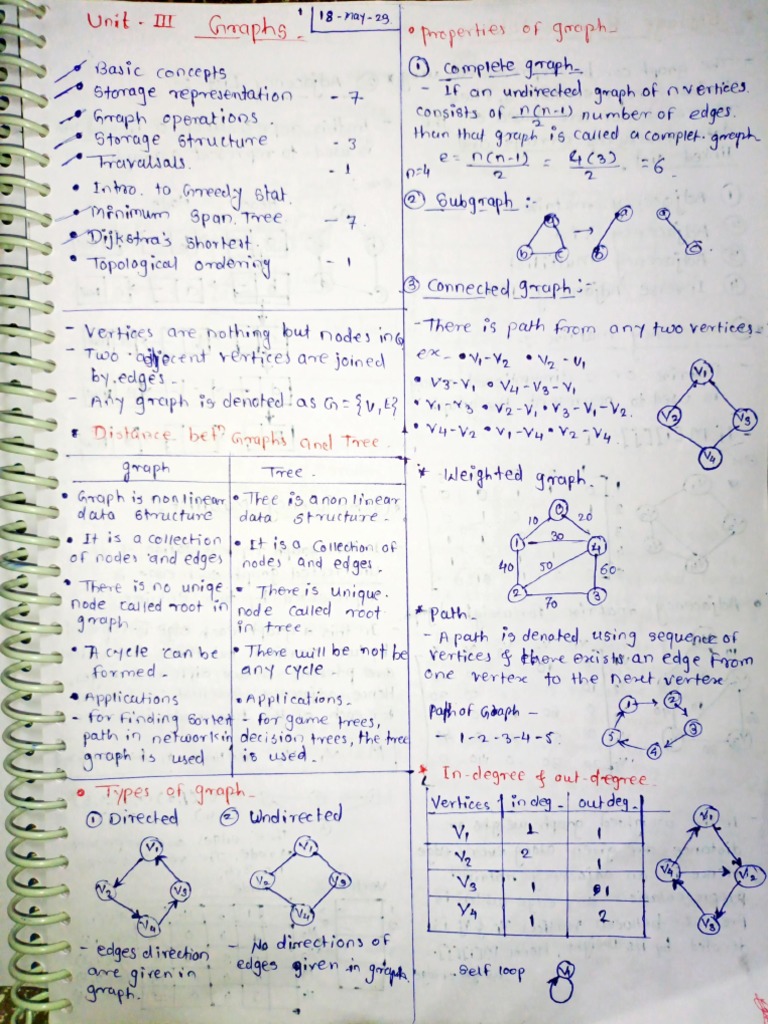 Unit - III Graphs
18-may-23
Basic concepts
Storage representation - 7
Graph operations.
Storage Structure - 3
Travalsals. - 1
• Intro. to Greedy Stat.
• Minimum Span. Tree - 7
• Dijkstra's shortest.
• Topological ordering - 1
- Vertices are nothing but nodes in G
- Two adjecent vertices are joined
by edges -
- Any graph is denoted as G = {V, E}
• Distance betn Graphs and Tree.
graph
• Graph is nonlinear
data structure
• It is a collection
of nodes and edges
• There is no uniqe
node called root in
graph
• A cycle can be
formed -
• Applications
- for finding sortest
path in network in
graph is used
Tree -
• Tree is a non linear
data structure -
• It is a Collection of
nodes and edges
• There is unique.
node called root
in tree.
• There will be not be
any cycle
• Applications -
- for game trees,
decision trees, the tree
is used.
• Types of graph -
① Directed ② Undirected
V1
V2 V3
V4
V1
V2 V3
V4
- edges direction
are given in
graph.
- No directions of
edges given in graph.
• Properties of graph -
① Complete graph -
- If an undirected graph of n vertices
consists of n(n-1)/2 number of edges.
than that graph is called a complet. graph
n=4 e = n(n-1)/2 = 4(3)/2 = 6
② Subgraph :-
a a a
b c → b c
③ Connected graph :-
- There is path from any two vertices -
ex - • V1-V2 • V2-V1
• V3-V1 • V4-V3-V1
• V1-V3 • V2-V1 • V3-V1-V2.
• V4-V2 • V1-V4 • V2-V4
V1
V2 V3
V4
* Weighted graph -
0
10 20
1 30 4
40 50 60
2 70 3
* Path -
- A path is denoted using sequence of
vertices & there exists an edge from
one vertex to the next vertex
Path of Graph -
- 1-2-3-4-5.
1 2
5 3
4
* In-degree & out-degree
Vertices in deg - out deg -
V1 1 1
V2 2 1
V3 1 1
V4 1 2
V1
V4 V2
V3
Self loop